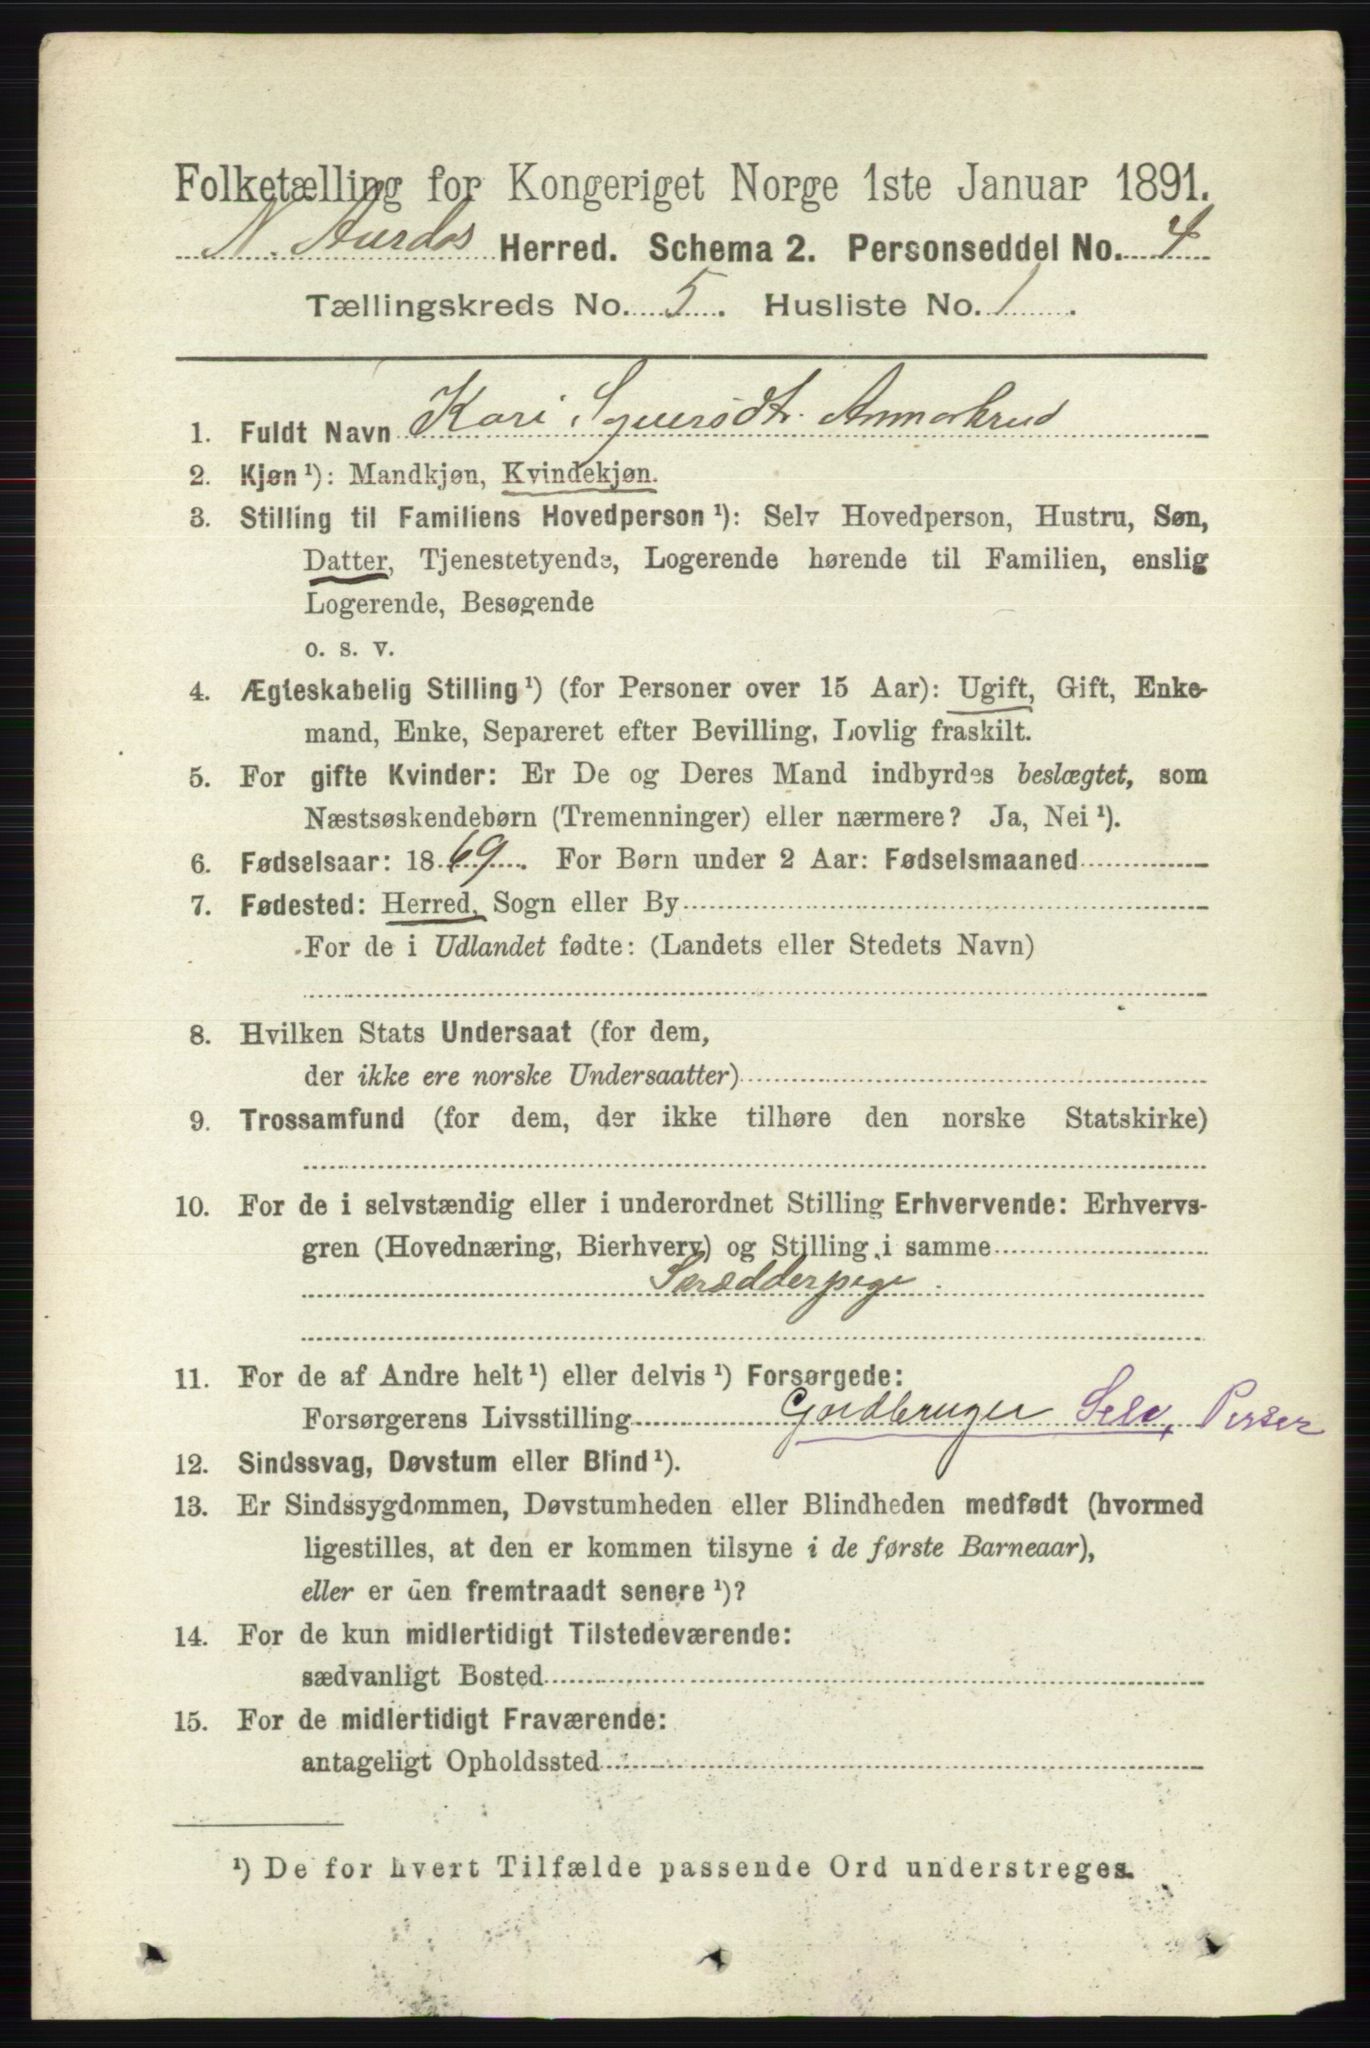 Folketælling for Kongeriget Norge 1ste Januar 1891.
N. Aurdals Herred. Schema 2. Personseddel No. 4
Tællingskreds No. 5. Husliste No. 1.
1. Fuldt Navn Kari Syversdtr.
2. Kjøn ¹): Mandkjøn, Kvindekjøn.
3. Stilling til Familiens Hovedperson ¹): Selv Hovedperson, Hustru, Søn,
Datter, Tjenestetyende, Logerende hørende til Familien, enslig
Logerende, Besøgende
o. s. v.
4. Ægteskabelig Stilling ¹) (for Personer over 15 Aar): Ugift, Gift, Enke-
mand, Enke, Separeret efter Bevilling, Lovlig fraskilt.
5. For gifte Kvinder: Er De og Deres Mand indbyrdes beslægtet, som
Næstsøskendebørn (Tremenninger) eller nærmere? Ja, Nei ¹).
6. Fødselsaar: 1869. For Børn under 2 Aar: Fødselsmaaned
7. Fødested: Herred, Sogn eller By
For de i Udlandet fødte: (Landets eller Stedets Navn)
8. Hvilken Stats Undersaat (for dem,
der ikke ere norske Undersaatter)
9. Trossamfund (for dem, der ikke tilhøre den norske Statskirke)
10. For de i selvstændig eller i underordnet Stilling Erhvervende: Erhvervs-
gren (Hovednæring, Bierhverv) og Stilling i samme
Skrædderpige.
11. For de af Andre helt ¹) eller delvis ¹) Forsørgede:
Forsørgerens Livsstilling Gardbruger Selv,
12. Sindssvag, Døvstum eller Blind ¹).
13. Er Sindssygdommen, Døvstumheden eller Blindheden medfødt (hvormed
ligestilles, at den er kommen tilsyne i de første Barneaar),
eller er den fremtraadt senere ¹)?
14. For de kun midlertidigt Tilstedeværende:
sædvanligt Bosted
15. For de midlertidigt Fraværende:
antageligt Opholdssted
¹) De for hvert Tilfælde passende Ord understreges.